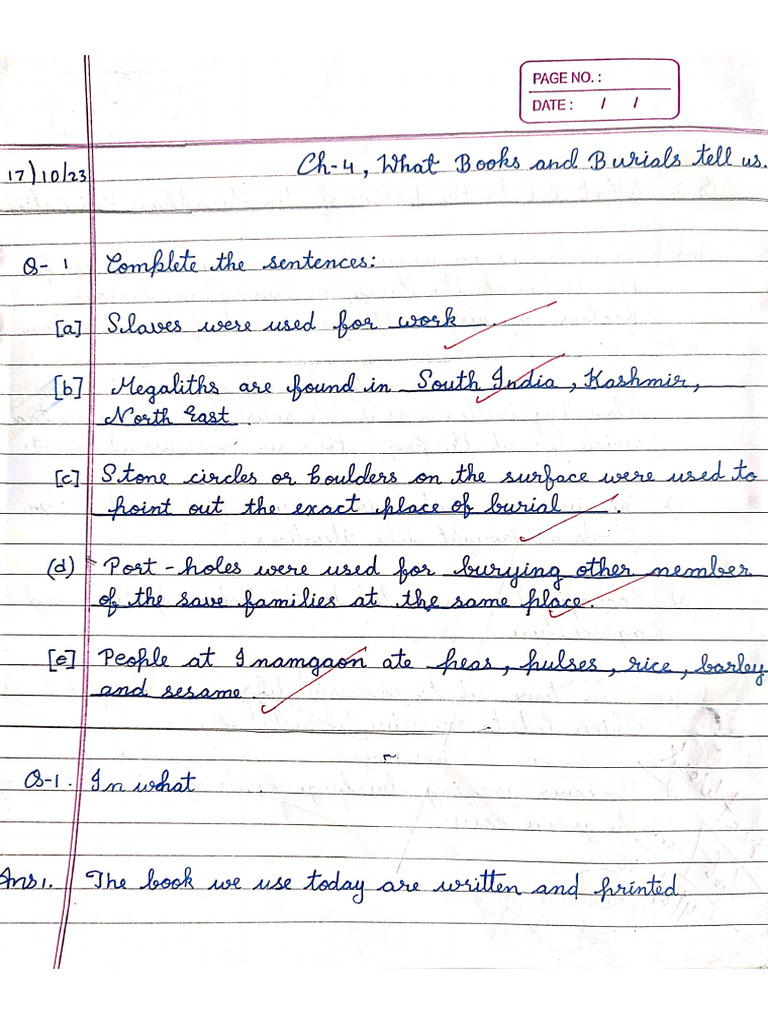 PAGE NO. :
DATE : / /
17/10/23 Ch-4, What Books and Burials tell us.
Q- 1 Complete the sentences:
[a] Slaves were used for work .
[b] Megaliths are found in South India, Kashmir,
North East .
[c] Stone circles or boulders on the surface were used to
point out the exact place of burial .
(d) Port-holes were used for burying other nember
of the save families at the same place.
[e] People at Inamgaon ate peas, pulses, rice, barley
and sesame .
Q-1. In what
Ans1. The book we use today are written and printed